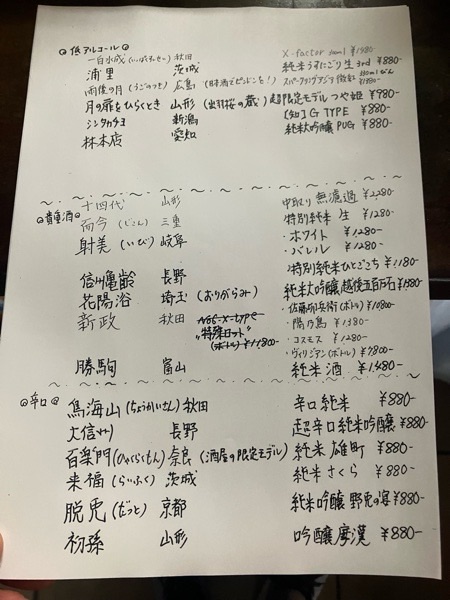 ◎低アルコール◎
一白水成 秋田 X-factor ¥1480-
浦里 茨城 純米うすにごり生 3rd ¥880-
雨後の月 (うごのつき) 広島 (日本酒でピュンを!) スパークリングアジア微紅
月の扉をひらくとき 山形 (出羽桜の蔵) 超限定モデル つや姫 ¥980-
シン・タカチヨ 新潟 G TYPE ¥880-
林本店 愛知 純米大吟醸 PUG ¥880-
◎貴重酒◎
十四代 山形 中取り 無濾過 ¥2280-
而今 (じこん) 三重 特別純米 生 ¥1280-
射美 (いび) 岐阜 ・ホワイト ¥1280-
・バレル ¥1280-
信州亀齢 長野 特別純米ひとごこち ¥1180-
花陽浴 埼玉 (おりがらみ) 純米大吟醸 越後五百万石 ¥1580-
新政 秋田 No6 X-type "特殊ロット" (ボトル) ¥17800- ・佐藤卯兵衛 (ボトル) ¥10800-
・陽乃鳥 ¥1380-
・コスモス ¥1280-
・ヴィリジアン (ボトル) ¥9800-
勝駒 富山 純米酒 ¥1480-
◎辛口◎
鳥海山 (ちょうかいさん) 秋田 辛口純米 ¥880-
大信州 長野 超辛口純米吟醸 ¥880-
百楽門 (ひゃくらくもん) 奈良 (酒屋の限定モデル) 純米 雄町 ¥880-
来福 (らいふく) 茨城 純米 さくら ¥880-
脱兎 (だっと) 京都 純米吟醸 野兎の宴 ¥880-
初孫 山形 吟醸 摩漢 ¥880-